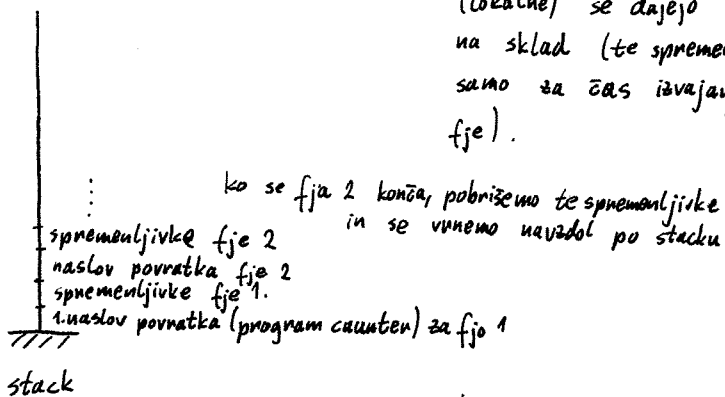 (lokalne) se dajejo
na sklad (te spremen
samo za čas izvajan
fje).
ko se fja 2 konča, pobrišemo te spremenljivke
in se vrnemo navzdol po stacku
spremenljivke fje 2
naslov povratka fje 2
spremenljivke fje 1.
1. naslov povratka (program caunter) za fjo 1
stack